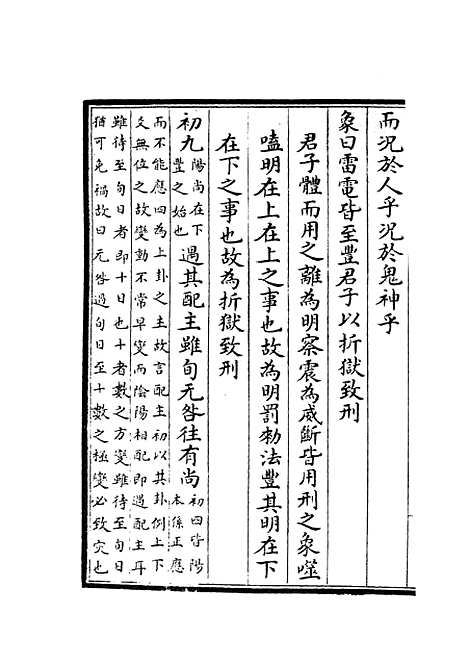 而況於人乎況於鬼神乎
象曰雷電皆至豐君子以折獄致刑
君子體而用之離為明察震為威斷皆用刑之象噬
嗑明在上在上之事也故為明罰勑法豐其明在下
在下之事也故為折獄致刑
初九陽尚在下豐之始也遇其配主雖旬无咎往有尚初四皆陽本係正應
而不能應四為上卦之主故言配主初以其卦例上下
爻無位之故變動不常早變而陰陽相配即遇配主耳
雖待至旬日者即十日也十者數之方變雖待至旬日
猶可免禍故曰无咎過旬日至十數之極變必致灾也